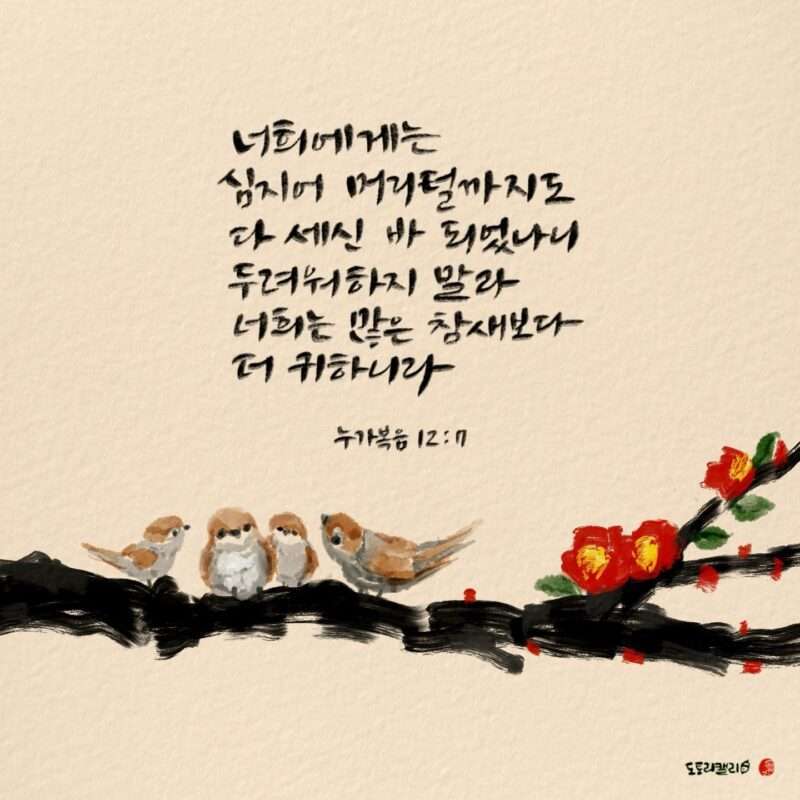 너희에게는
심지어 머리털까지도
다 세신 바 되었나니
두려워하지 말라
너희는 많은 참새보다
더 귀하니라
누가복음 12:7
도토리캘리